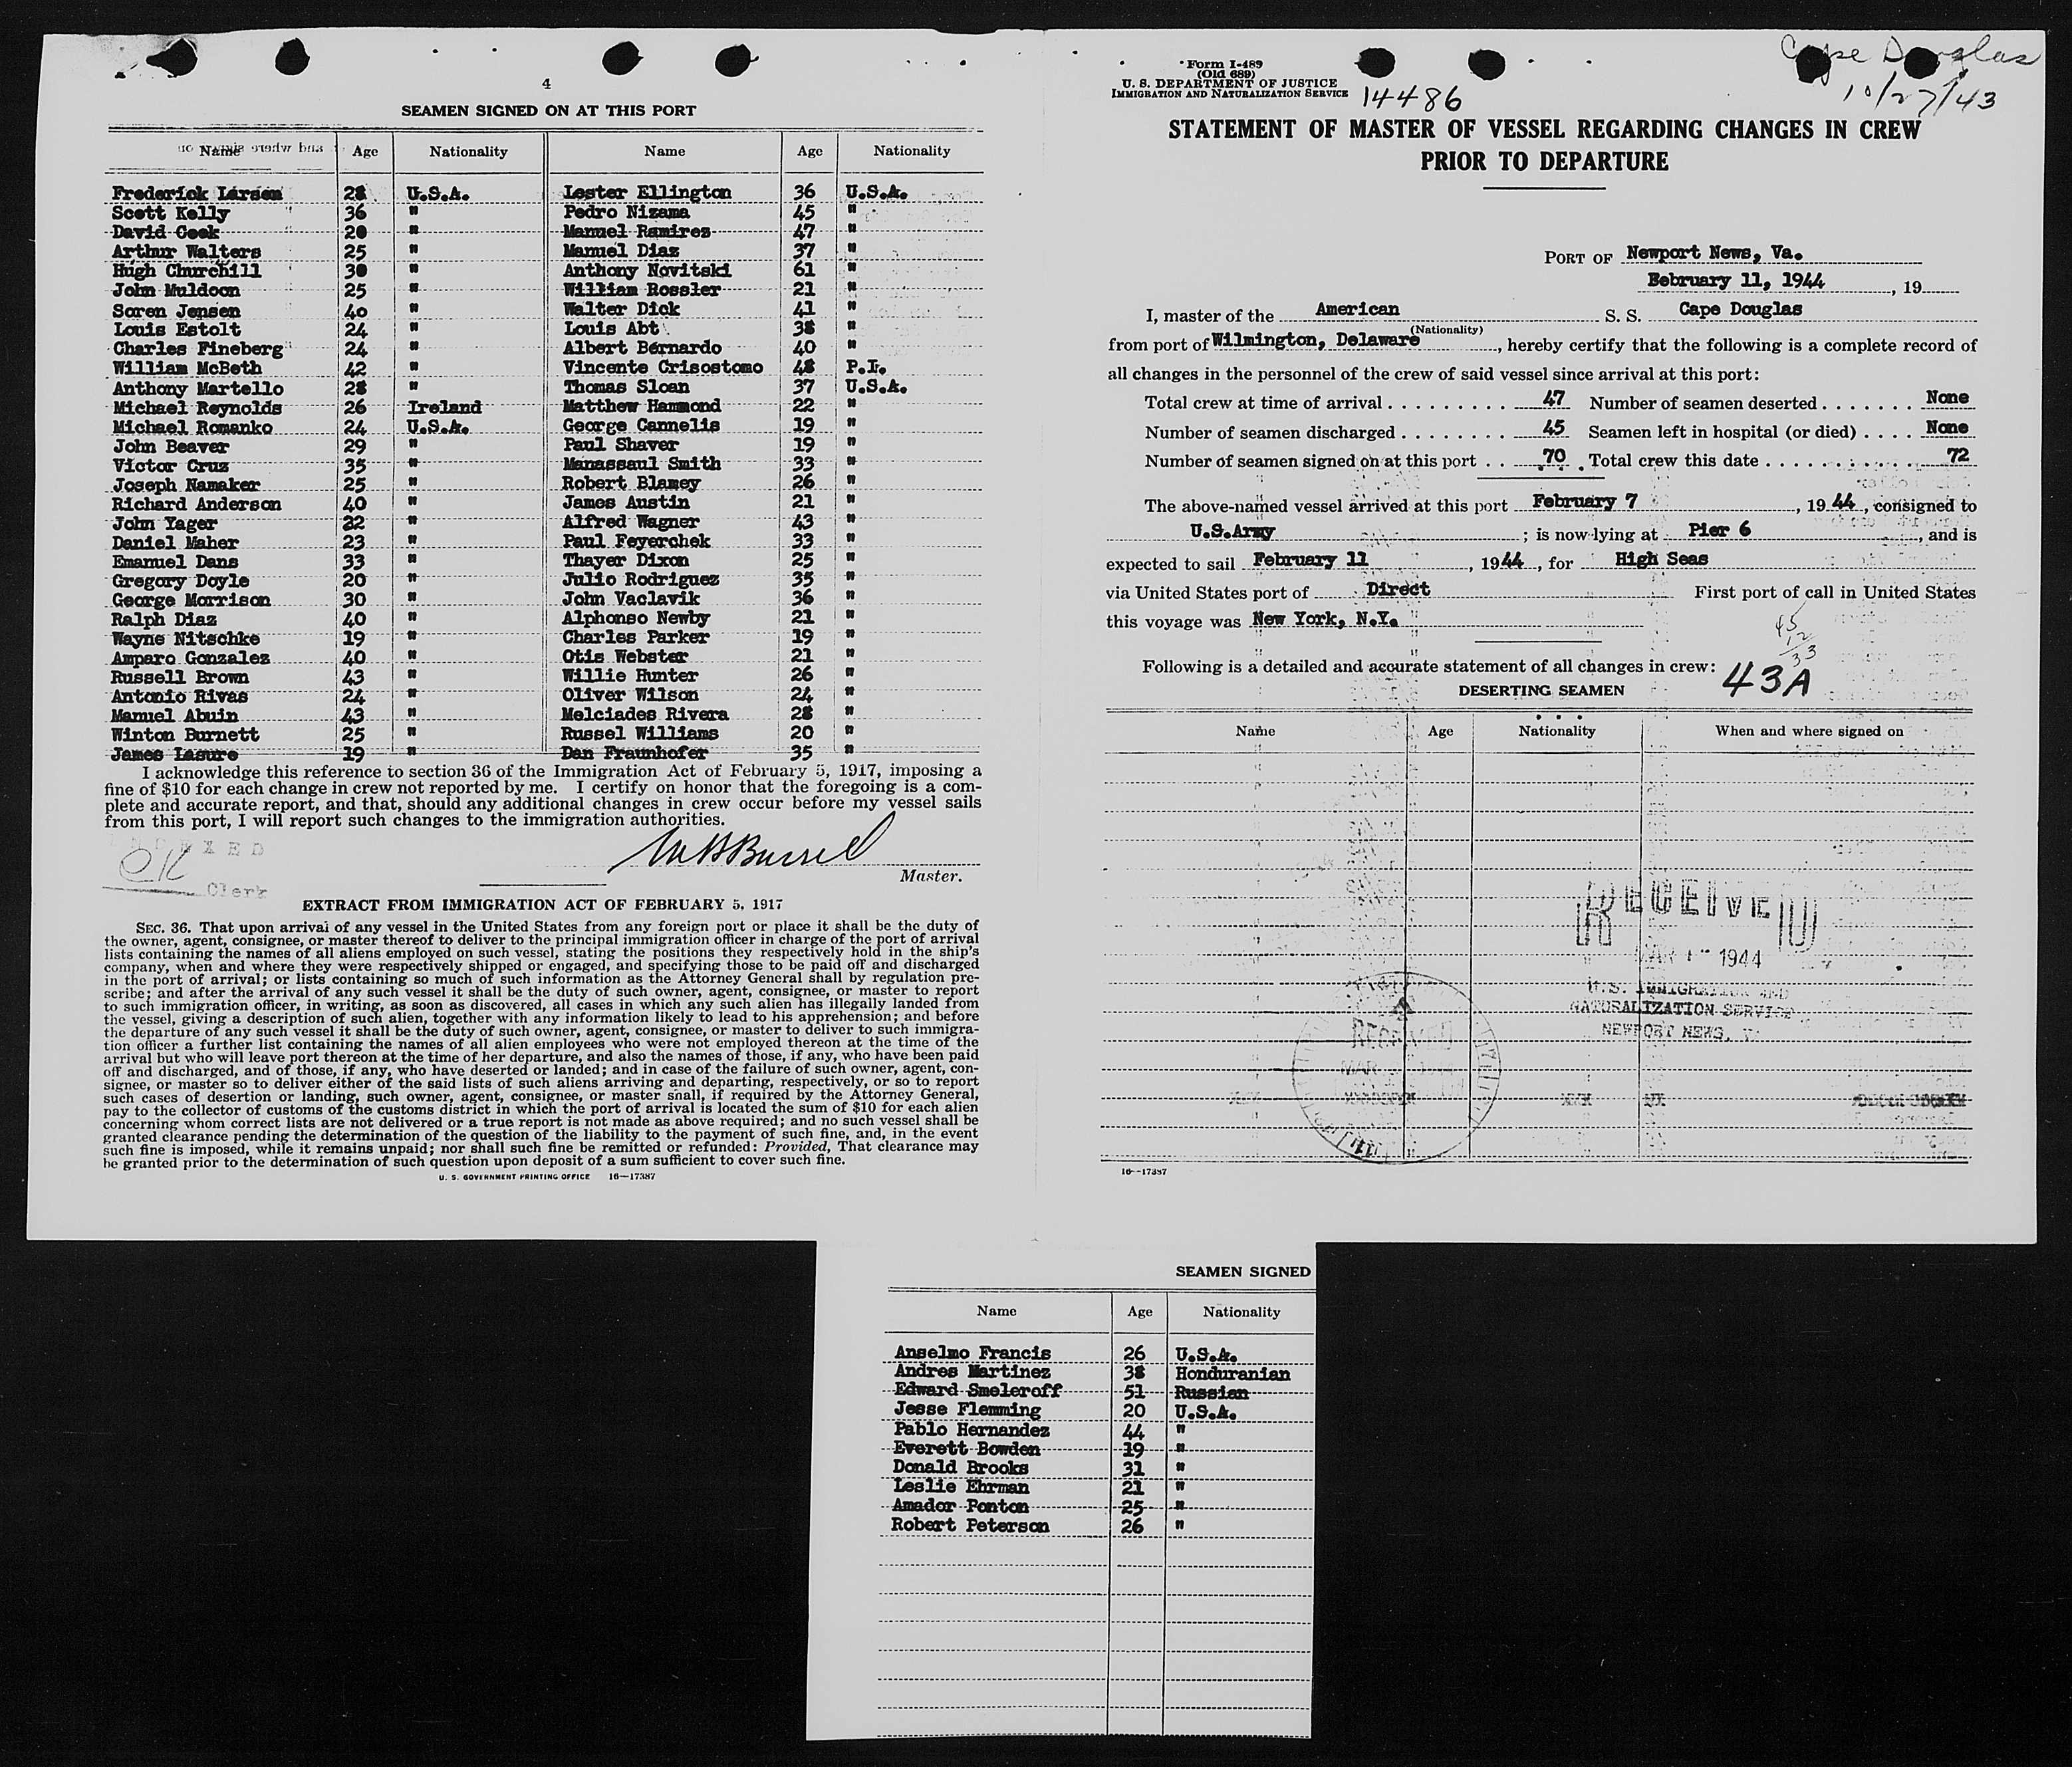 4
SEAMEN SIGNED ON AT THIS PORT
Name Age Nationality Name Age Nationality
Frederick Larsen 28 U.S.A. Lester Ellington 36 U.S.A.
Scott Kelly 36 " Pedro Nizama 45 "
David Cook 20 " Manuel Ramirez 47 "
Arthur Walters 25 " Manuel Diaz 37 "
Hugh Churchill 30 " Anthony Novitski 61 "
John Muldoon 25 " William Rossler 21 "
Soren Jensen 40 " Walter Dick 41 "
Louis Estolt 24 " Louis Abt 38 "
Charles Fineberg 24 " Albert Bernardo 40 "
William McBeth 42 " Vincente Crisostomo 48 P.I.
Anthony Martello 28 " Thomas Sloan 37 U.S.A.
Michael Reynolds 26 Ireland Matthew Hammond 22 "
Michael Romanko 24 U.S.A. George Cannelis 19 "
John Beaver 29 " Paul Shaver 19 "
Victor Cruz 35 " Manassaul Smith 33 "
Joseph Namaker 25 " Robert Blamey 26 "
Richard Anderson 40 " James Austin 21 "
John Yager 22 " Alfred Wagner 43 "
Daniel Maher 23 " Paul Feyerchek 33 "
Emanuel Dans 33 " Thayer Dixon 25 "
Gregory Doyle 20 " Julio Rodriguez 35 "
George Morrison 30 " John Vaclavik 36 "
Ralph Diaz 40 " Alphonso Newby 21 "
Wayne Nitschke 19 " Charles Parker 19 "
Amparo Gonzalez 40 " Otis Webster 21 "
Russell Brown 43 " Willie Hunter 26 "
Antonio Rivas 24 " Oliver Wilson 24 "
Manuel Abuin 43 " Melciades Rivera 28 "
Winton Burnett 25 " Russel Williams 20 "
James Lasure 19 " Dan Fraunhofer 35 "
I acknowledge this reference to section 36 of the Immigration Act of February 5, 1917, imposing a
fine of $10 for each change in crew not reported by me. I certify on honor that the foregoing is a com-
plete and accurate report, and that, should any additional changes in crew occur before my vessel sails
from this port, I will report such changes to the immigration authorities.
OK
Clerk
Master.
EXTRACT FROM IMMIGRATION ACT OF FEBRUARY 5, 1917
SEC. 36. That upon arrival of any vessel in the United States from any foreign port or place it shall be the duty of
the owner, agent, consignee, or master thereof to deliver to the principal immigration officer in charge of the port of arrival
lists containing the names of all aliens employed on such vessel, stating the positions they respectively hold in the ship's
company, when and where they were respectively shipped or engaged, and specifying those to be paid off and discharged
in the port of arrival; or lists containing so much of such information as the Attorney General shall by regulation pre-
scribe; and after the arrival of any such vessel it shall be the duty of such owner, agent, consignee, or master to report
to such immigration officer, in writing, as soon as discovered, all cases in which any such alien has illegally landed from
the vessel, giving a description of such alien, together with any information likely to lead to his apprehension; and before
the departure of any such vessel it shall be the duty of such owner, agent, consignee, or master to deliver to such immigra-
tion officer a further list containing the names of all alien employees who were not employed thereon at the time of the
arrival but who will leave port thereon at the time of her departure, and also the names of those, if any, who have been paid
off and discharged, and of those, if any, who have deserted or landed; and in case of the failure of such owner, agent, con-
signee, or master so to deliver either of the said lists of such aliens arriving and departing, respectively, or so to report
such cases of desertion or landing, such owner, agent, consignee, or master shall, if required by the Attorney General,
pay to the collector of customs of the customs district in which the port of arrival is located the sum of $10 for each alien
concerning whom correct lists are not delivered or a true report is not made as above required; and no such vessel shall be
granted clearance pending the determination of the question of the liability to the payment of such fine, and, in the event
such fine is imposed, while it remains unpaid; nor shall such fine be remitted or refunded: Provided, That clearance may
be granted prior to the determination of such question upon deposit of a sum sufficient to cover such fine.
U. S. GOVERNMENT PRINTING OFFICE 16—17387
Cape Douglas
10/27/43
Form I-489
(Old 689)
U. S. DEPARTMENT OF JUSTICE
IMMIGRATION AND NATURALIZATION SERVICE
14486
STATEMENT OF MASTER OF VESSEL REGARDING CHANGES IN CREW
PRIOR TO DEPARTURE
PORT OF Newport News, Va.
February 11, 1944, 19
I, master of the American S. S. Cape Douglas
(Nationality)
from port of Wilmington, Delaware, hereby certify that the following is a complete record of
all changes in the personnel of the crew of said vessel since arrival at this port:
Total crew at time of arrival 47 Number of seamen deserted None
Number of seamen discharged 45 Seamen left in hospital (or died) None
Number of seamen signed on at this port 70 Total crew this date 72
The above-named vessel arrived at this port February 7, 1944, consigned to
U.S.Army; is now lying at Pier 6, and is
expected to sail February 11, 1944, for High Seas
via United States port of Direct First port of call in United States
this voyage was New York, N.Y.
45
12
33
Following is a detailed and accurate statement of all changes in crew: 43A
DESERTING SEAMEN
Name Age Nationality When and where signed on
RECEIVED
1944
U.S. IMMIGRATION AND
NATURALIZATION SERVICE
NEWPORT NEWS, V
RECEIVED
MAR
16—17387
SEAMEN SIGNED
Name Age Nationality
Anselmo Francis 26 U.S.A.
Andres Martinez 38 Honduranian
Edward Smeleroff 51 Russian
Jesse Flemming 20 U.S.A.
Pablo Hernandez 44 "
Everett Bowden 19 "
Donald Brooks 31 "
Leslie Ehrman 21 "
Amador Ponton 25 "
Robert Peterson 26 "